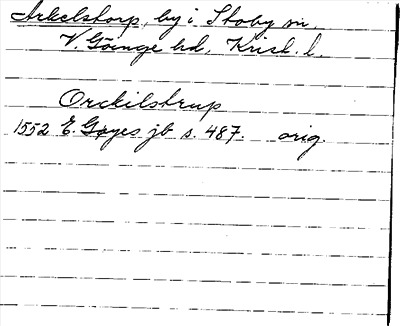 Arkelstorp, by i Stoby sn,
V. Göinge hd, Krist. l.
Orckilstrup
1552 E. Gøyes jb s. 487. orig.